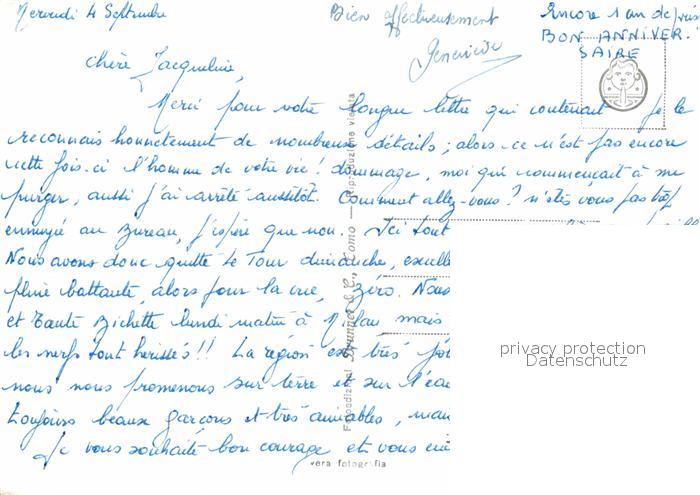 Mercredi 4 Septembre
Bien affectueusement
Geneviève
Encore 1 an de
BON ANNIVER-
SAIRE
Chère Jacqueline,
Merci pour votre longue lettre qui contenait je le
reconnais honnetement de nombreux détails ; alors ce n'est pas encore
cette fois-ci l'homme de votre vie ! dommage, moi qui commençait à me
purger, aussi j'ai arrêté aussitôt. Comment allez-vous ? n'êtes vous pas trop
ennuyé au Bureau, j'espère que non. Ici tout
Nous avons donc quitté le Tour dimanche,
pluie battante, alors pour la vue, zéro. Nous
et Tante Bichette lundi matin à Milan mais
les nerfs tout hérissés !! La région est très
nous nous promenons sur terre et sur l'eau
Toujours beaux garçons et très aimables,
Je vous souhaite bon courage et vous
Fotoedizioni Brunner & C., Como — Riproduzione vietata
vera fotografia
privacy protection
Datenschutz